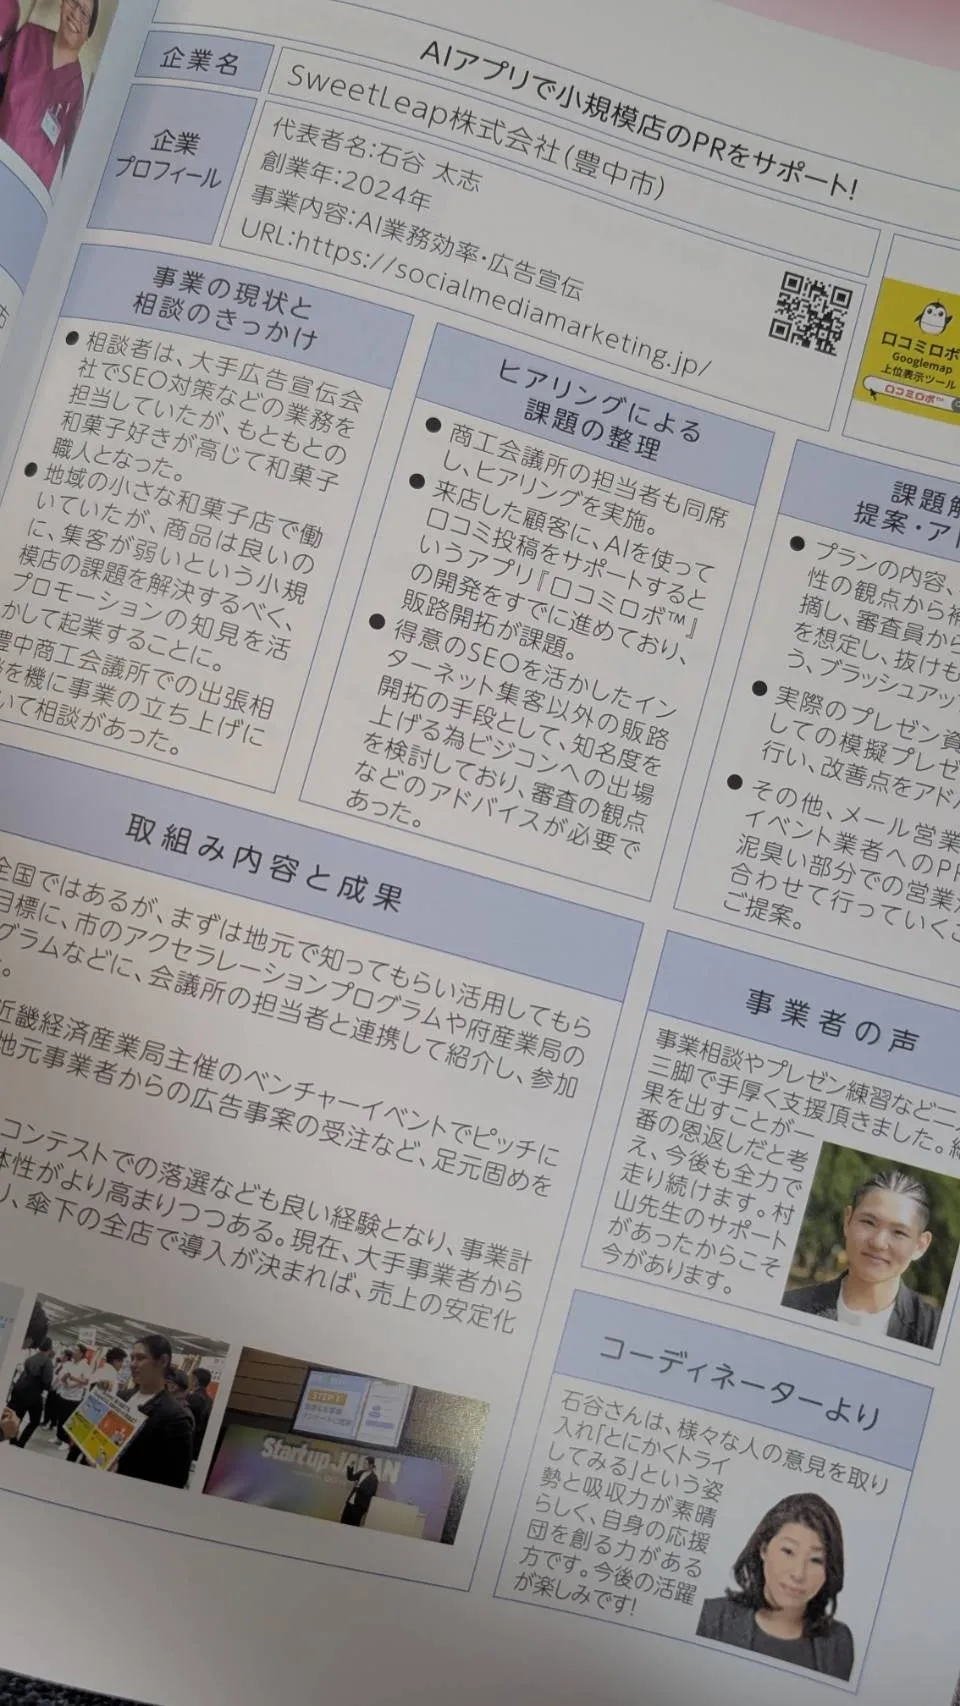 AIアプリで小規模店のPRをサポート!
企業名
SweetLeap株式会社(豊中市)
企業
プロフィール
代表者名:石谷 太志
創業年:2024年
事業内容:AI業務効率・広告宣伝
URL:https://socialmediamarketing.jp/
口コミロボ
Googlemap
上位表示ツール
口コミロボ™
事業の現状と
相談のきっかけ
●相談者は、大手広告宣伝会
社でSEO対策などの業務を
担当していたが、もともとの
和菓子好きが高じて和菓子
職人となった。
●地域の小さな和菓子店で働
いていたが、商品は良いの
に、集客が弱いという小規
模店の課題を解決するべく、
プロモーションの知見を活
かして起業することに。
豊中商工会議所での出張相
を機に事業の立ち上げに
いて相談があった。
ヒアリングによる
課題の整理
●商工会議所の担当者も同席
し、ヒアリングを実施。
●来店した顧客に、AIを使って
口コミ投稿をサポートすると
いうアプリ『口コミロボ™』
の開発をすでに進めており、
販路開拓が課題。
●得意のSEOを活かしたイン
ターネット集客以外の販路
開拓の手段として、知名度を
上げる為ビジコンへの出場
を検討しており、審査の観点
などのアドバイスが必要で
あった。
課題解
提案・アド
●プランの内容、
性の観点から補
摘し、審査員から
を想定し、抜けも
う、ブラッシュアッ
●実際のプレゼン資
しての模擬プレゼ
行い、改善点をアド
●その他、メール営業
イベント業者へのPR
泥臭い部分での営業
合わせて行っていくこ
ご提案。
取組み内容と成果
全国ではあるが、まずは地元で知ってもらい活用してもら
目標に、市のアクセラレーションプログラムや府産業局の
グラムなどに、会議所の担当者と連携して紹介し、参加
近畿経済産業局主催のベンチャーイベントでピッチに
地元事業者からの広告事案の受注など、足元固めを
コンテストでの落選なども良い経験となり、事業計
体性がより高まりつつある。現在、大手事業者から
り、傘下の全店で導入が決まれば、売上の安定化
STEP1
Startup JAPAN
事業者の声
事業相談やプレゼン練習など二人
三脚で手厚く支援頂きました。結
果を出すことが一
番の恩返しだと考
え、今後も全力で
走り続けます。村
山先生のサポート
があったからこそ
今があります。
コーディネーターより
石谷さんは、様々な人の意見を取り
入れ「とにかくトライ
してみる」という姿
勢と吸収力が素晴
らしく、自身の応援
団を創る力がある
方です。今後の活躍
が楽しみです!